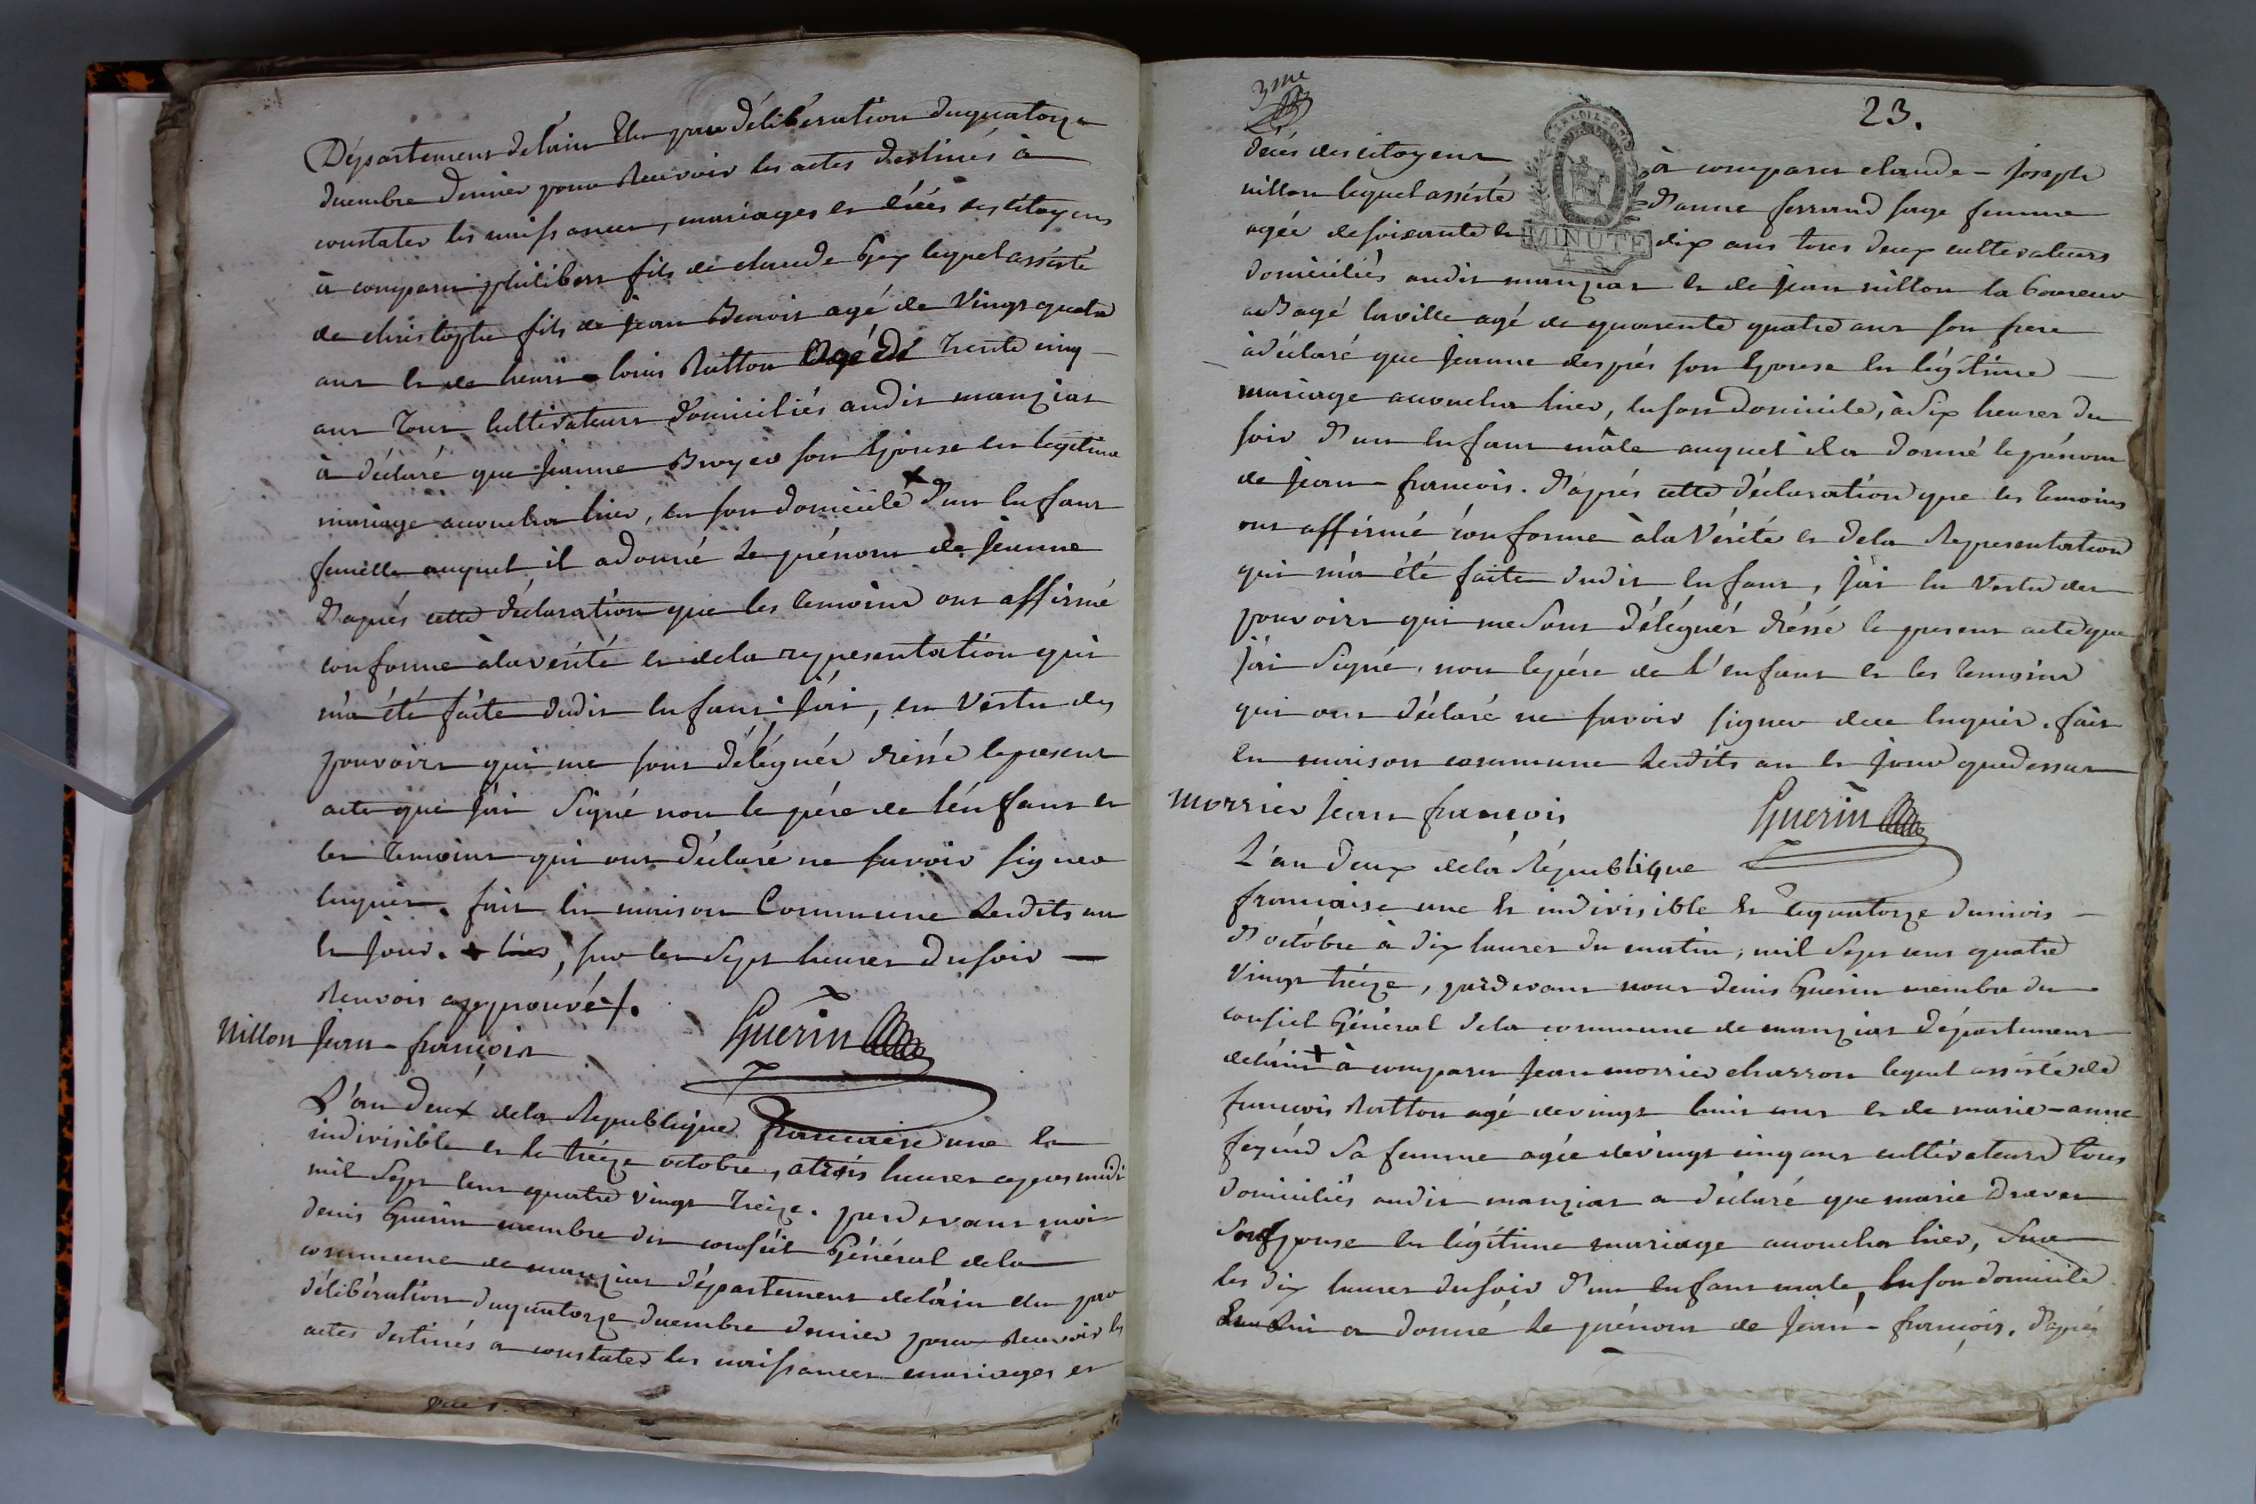 Département de lain Elu pour délibération du quatorze
decembre dernier pour Recevoir les actes destinés à
constater les naissances, mariages et décés des citoyens
à comparu philibert fils de claude Gex lequel assisté
de christophe fils de jean Benoit agé de Vingt quatre
ans et de henri louis Rutton Agé de Trente cinq
ans Tous Cultivateurs domiciliés audit manziat
à déclaré que jeanne Broyer son Epouse en legitime
mariage accoucha hier, en son domicile + d'un Enfant
femelle auquel il a donné le prénom de jeanne
d'après cette déclaration que les temoins ont affirmé
conforme à la vérité et de la representation qui
m'a été faite dudit Enfant j'ai, en Vertu des
pouvoirs qui me sont délégués dréssé le present
acte que j'ai Signé non le pére de l'énfant et
les Temoins qui ont déclaré ne savoir signer
Enquis. fait En maison Commune Lesdits an
et jour. + , sur les Sept heures du soir —
Renvois approuvé.
Guerin
Nillon jean-françois
L'an deux de la République française une et
indivisible et le treize octobre, a trois heures apres midi
mil Sept Cent quatre Vingt Treize. pardevant moi
denis Guerin membre du conséil Général de la
commune de manziat département de lain elu par
délibération du quatorze decembre dernier pour Recevoir les
actes destinés a constater les naissances mariages et
3me
23.
MINUTE
4. S.
décés des citoyens à comparu claude - joseph
nillon lequel assisté d'anne ferrand sage femme
agée de soixante et dix ans tous deux cultivateurs
domiciliés audit manziat et de jean nillon laboureur
a Bagé laville agé de quarente quatre ans son frere
à déclaré que jeanne desprès son Epouse en légitime
mariage accoucha hier, en son domicile, à Six heures du
soir d'un Enfant mâle auquel il a donné le prénom
de jean - francois. d'aprés cette déclaration que les temoins
ont affirmé conforme à la Vérité et de la Representation
qui m'a été faite dudit Enfant, j'ai En Vertu des
pouvoirs qui me Sont délégués dréssé le present acte que
j'ai Signé, non le pére de l'enfant et les temoins
qui ont déclaré ne savoir signer de ce Enquis. fait
En maison commune Lesdits an et jour que dessus
Guerin
morrier jean françois
L'an deux de la République
francaise une et indivisible et le quatorze du mois
d'octobre à dix heures du matin, mil Sept cent quatre
Vingt tréize, pardevant nous denis Guerin membre du
conseil Général de la commune de manziat département
de lain + à comparu jean morrier charron lequel assisté de
francois Rutton agé de vingt huit ans et de marie - anne
sa femme agée de vingt cinq ans cultivateurs tous
domiciliés audit manziat a déclaré que marie
Son Epouse en légitime mariage accoucha hier, Sur
les dix heures du soir d'un enfant male, En son domicile
a donné le prénom de jean - françois. d'aprés